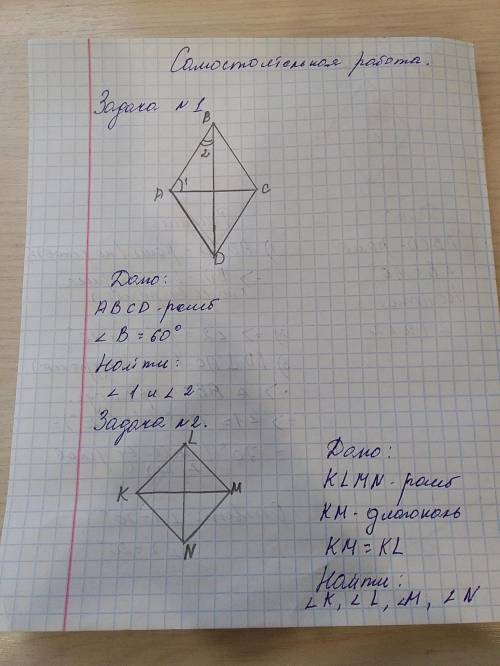 Самостоятельная работа.
Задача №1
B
2
A 1 C
D
Дано:
ABCD-ромб
∠B=60°
Найти:
∠1 и ∠2
Задача №2.
L
K M
N
Дано:
KLMN-ромб
KM-диагональ
KM=KL
Найти:
∠K, ∠L, ∠M, ∠N